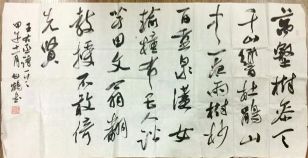 萬壑樹参天
千山響杜鵑山
中一夜雨樹杪
百重泉漢女
輸橦布巴人訟
芋田文翁翻
教授不敢倚
先賢
王
年十一月